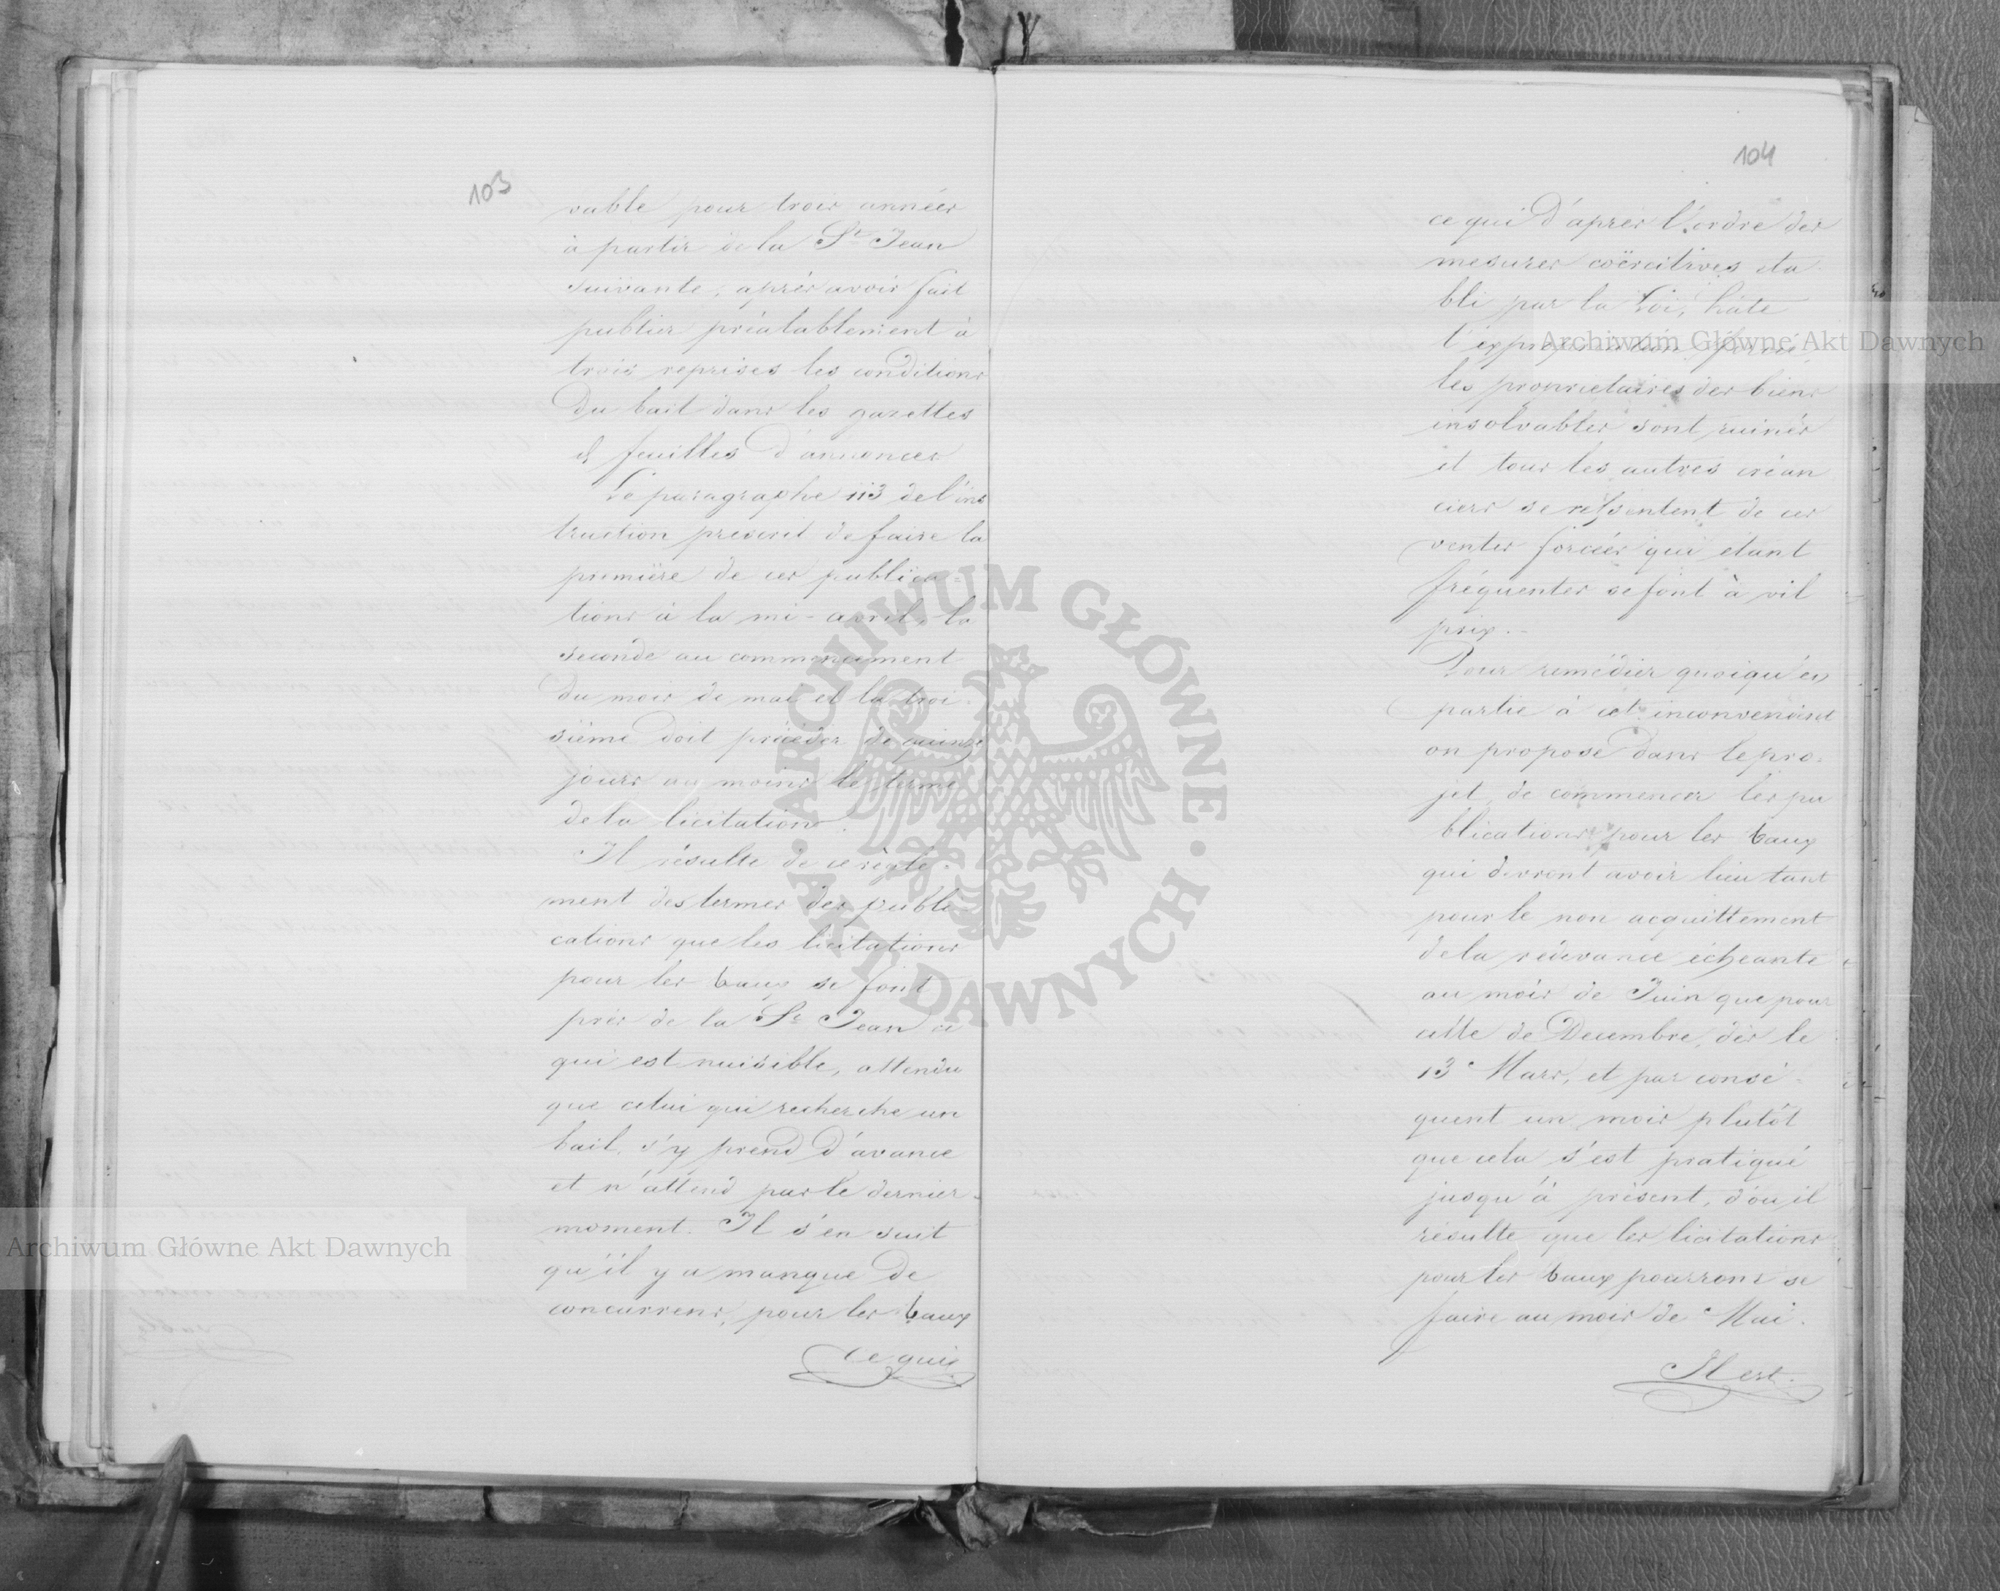 103
vable pour trois années
à partir de la St Jean
suivante, après avoir fait
publier préalablement à
trois reprises les conditions
du bail dans les gazettes
et feuilles d'annonces
Le paragraphe 113 de l'ins
truction prescrit de faire la
première de ces publica=
tions à la mi-avril, la
seconde au commencement
du mois de mai et la troi-
sième doit précéder de quinze
jours au moins le terme
de la licitation.
Il résulte de ce règle-
ment des termes des publi-
cations que les licitations
pour les baux se font
près de la St Jean ce
qui est nuisible, attendu
que celui qui recherche un
bail, s'y prend d'avance
et n'attend pas le dernier
moment. Il s'en suit
qu'il y a manque de
concurrens, pour les baux
ce qui
104
ce qui d'après l'ordre des
mesures coërcitives éta
bli par la loi, hâte
l'expropriation forcée,
les propriétaires des biens
insolvables sont ruinés
et tous les autres créan
ciers se ressentent de ces
ventes forcées qui étant
fréquentes se font à vil
prix.-
Pour remédier quoiqu'en
partie à cet inconvenient
on propose dans le pro-
jet, de commencer les pu
blications pour les baux
qui devront avoir lieu tant
pour le non acquittement
de la rédevance échéante
au mois de Juin que pour
celle de Decembre, dès le
13 Mars, et par consé-
quent un mois plutôt
que cela s'est pratiqué
jusqu'à présent, d'ou il
résulte que les licitations
pour les baux pourront se
faire au mois de Mai.
Il est.
Archiwum Główne Akt Dawnych
Archiwum Główne Akt Dawnych
ARCHIWUM GŁÓWNE
AKT DAWNYCH